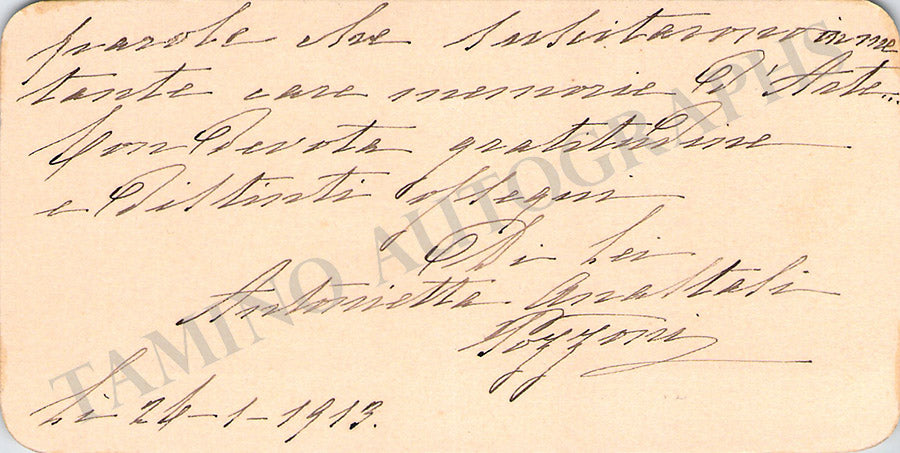 parole che suscitarono in me
tante care memorie D'Arte...
Con Devota gratitudine
e Distinti ossequi
Di Lei
Antonietta Anastasi
Pozzoni
Li 26-1-1913.
TAMINO AUTOGRAPHS